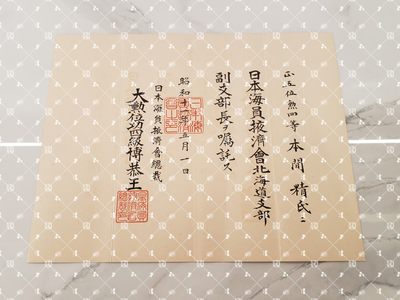 正五位勲四等本間精氏ニ
日本海員掖濟會北海道支部
副支部長ヲ嘱託ス
昭和十六年五月一日
日本海員掖濟會總裁
大勲位功四級博恭王